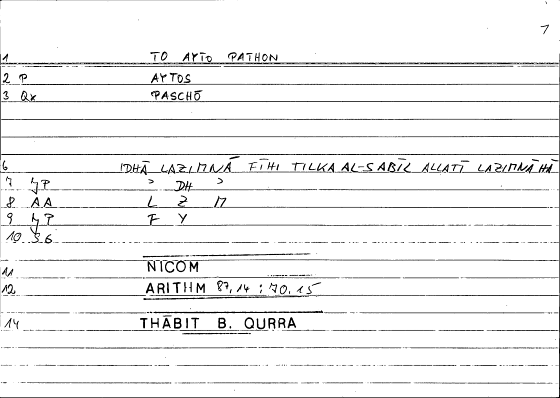 1
1 TO AYTO PATHON
2 P AYTOS
3 Qx PASCHŌ
6 IDHĀ LAZIMNĀ FĪHI TILKA AL-SABĪL ALLATĪ LAZIMNĀHĀ
7 ʾ DH ʾ
8 AA L Z M
9 F Y
10
11 NICOM
12 ARITHM 87,14 : 70.15
14 THĀBIT B. QURRA